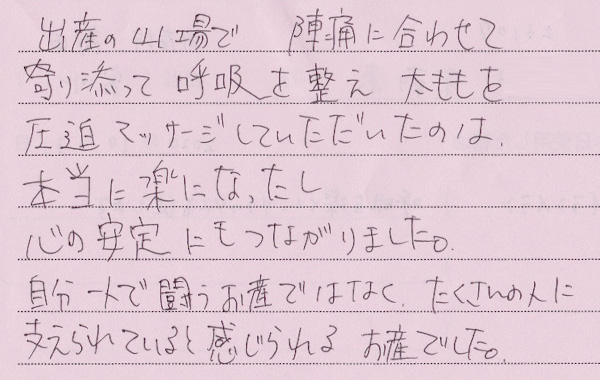 出産の山場で 陣痛に合わせて
寄り添って 呼吸を整え 太ももを
圧迫マッサージしていただいたのは、
本当に楽になったし
心の安定にもつながりました。
自分一人で闘うお産ではなく、たくさんの人に
支えられていると感じられる お産でした。